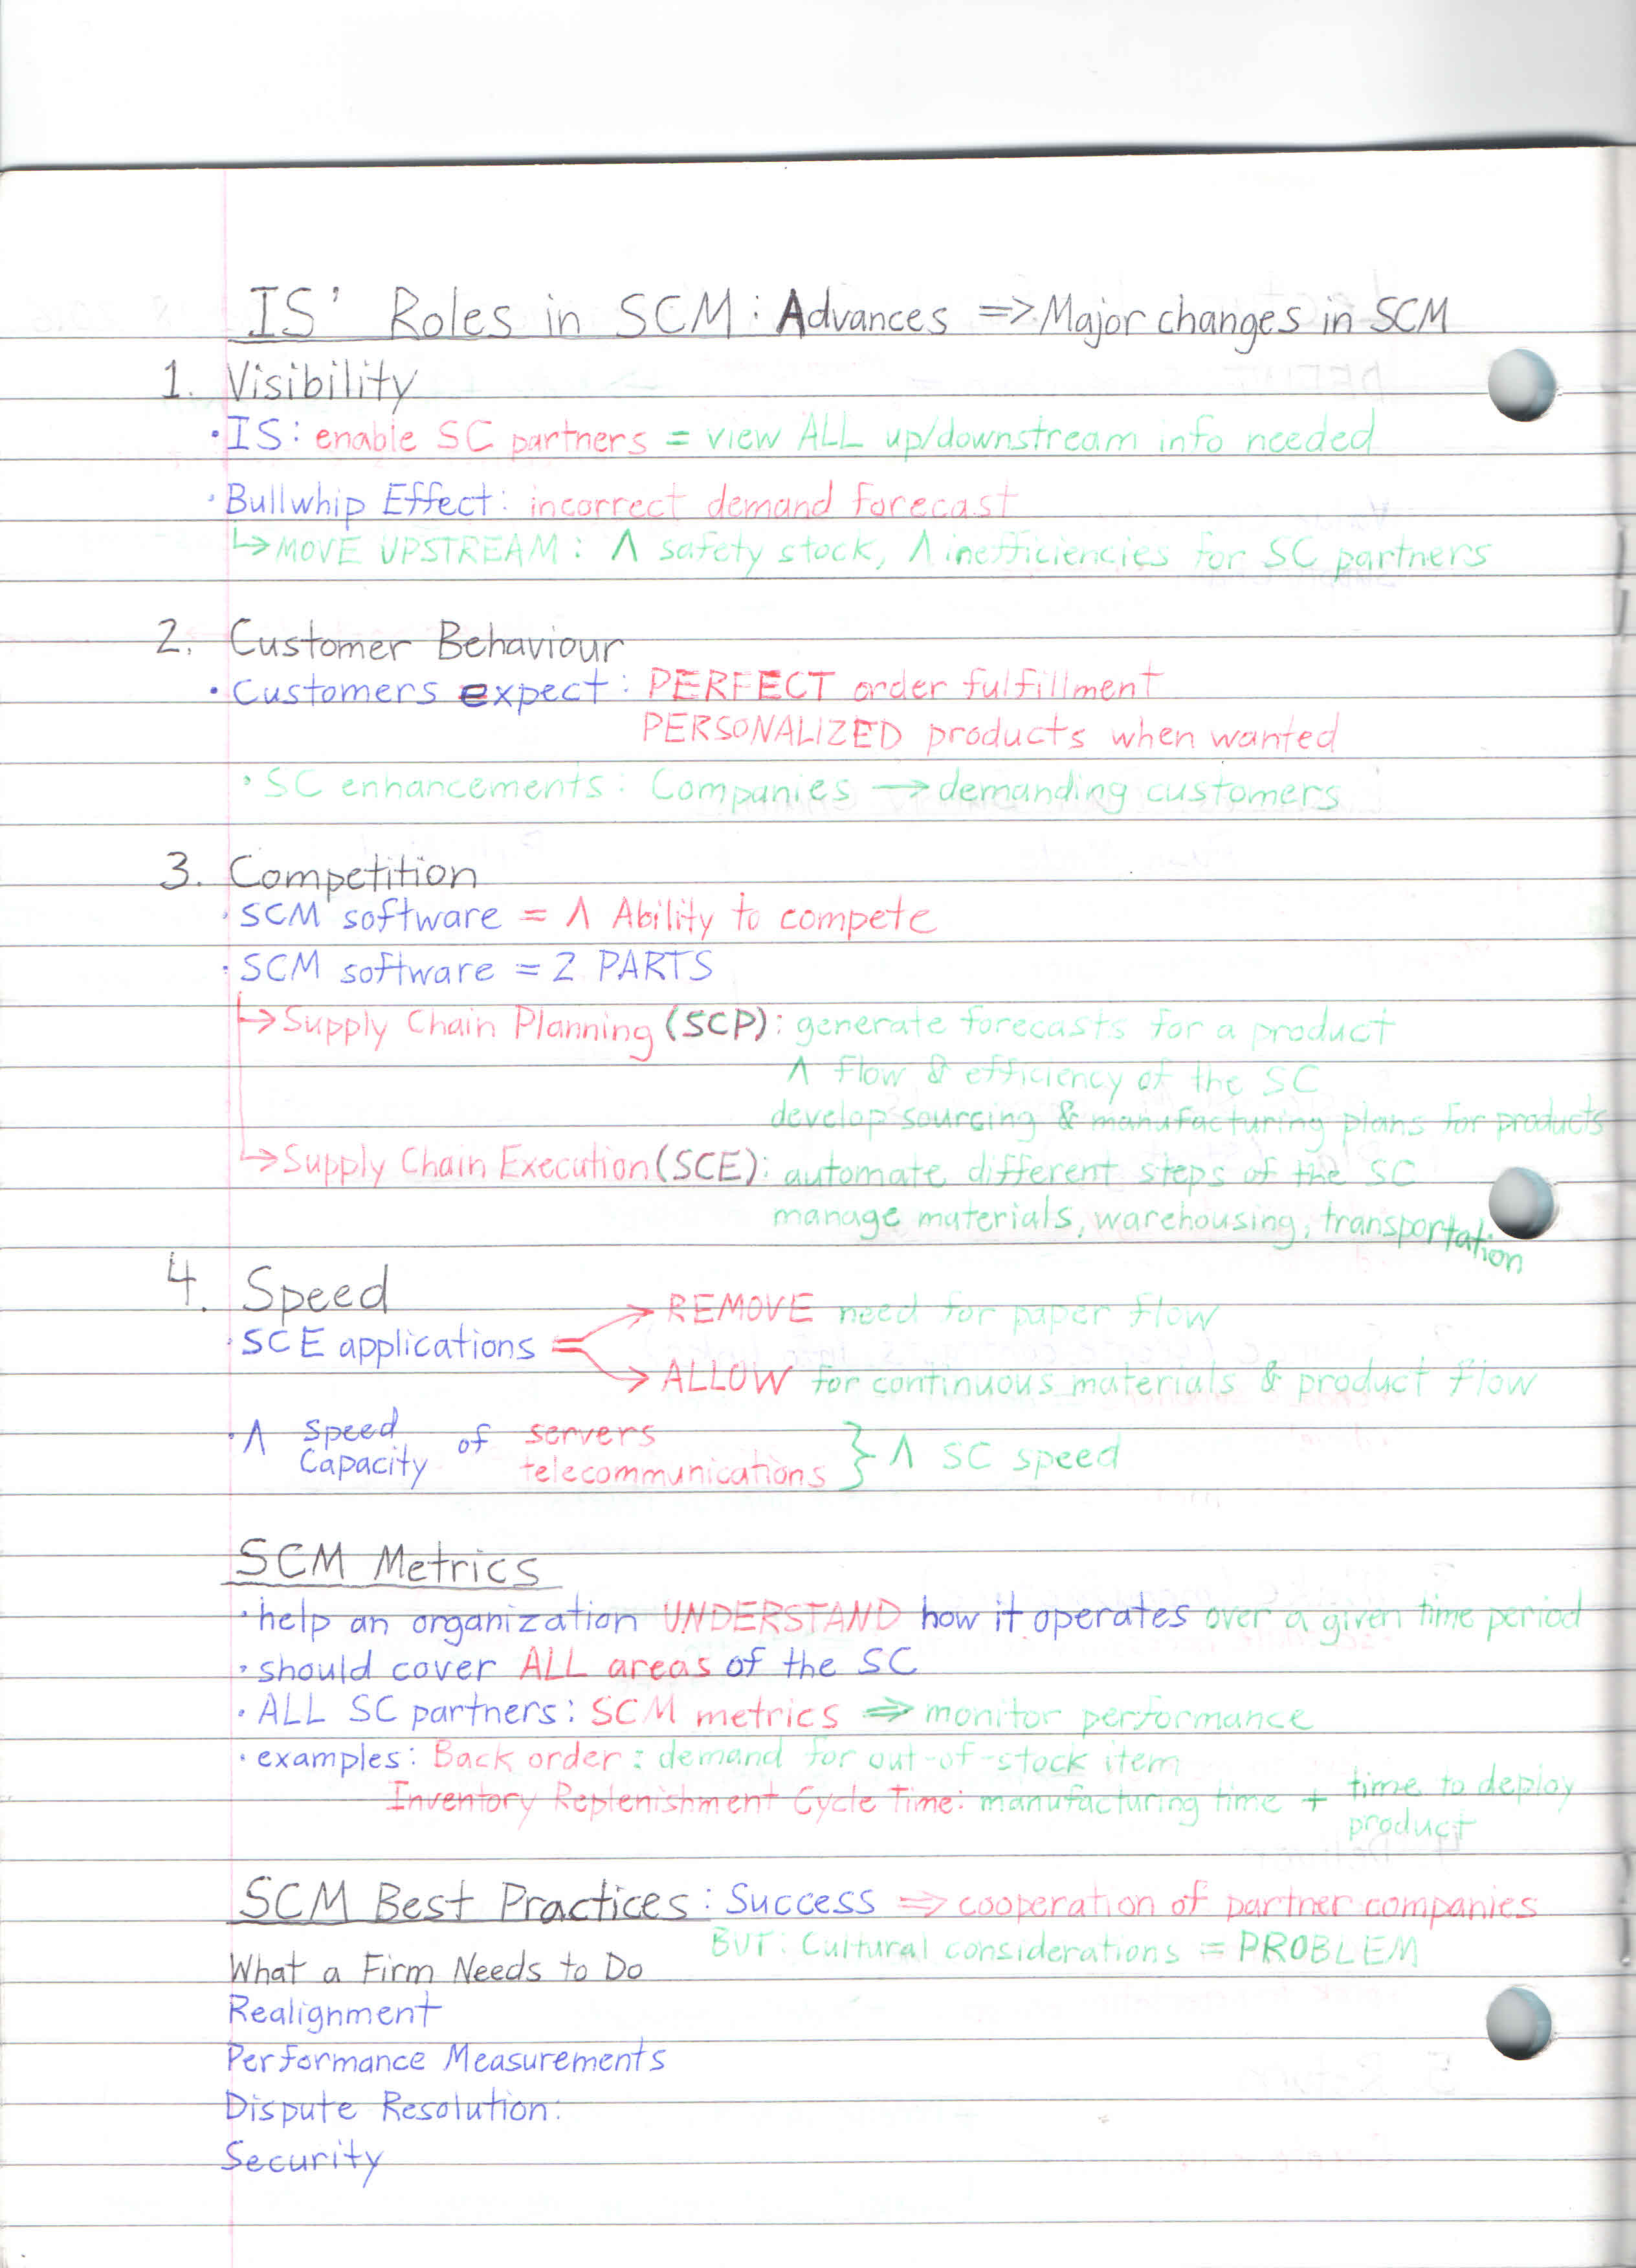 IS' Roles in SCM: Advances => Major changes in SCM
1. Visibility
• IS: enable SC partners = view ALL up/downstream info needed
• Bullwhip Effect: incorrect demand forecast
↳ MOVE UPSTREAM: Λ safety stock, Λ inefficiencies for SC partners
2. Customer Behaviour
• Customers expect: PERFECT order fulfillment
PERSONALIZED products when wanted
• SC enhancements: Companies → demanding customers
3. Competition
• SCM software = Λ Ability to compete
• SCM software = 2 PARTS
↳ Supply Chain Planning (SCP): generate forecasts for a product
Λ flow & efficiency of the SC
develop sourcing & manufacturing plans for products
↳ Supply Chain Execution (SCE): automate different steps of the SC
manage materials, warehousing, transportation
4. Speed
→ REMOVE need for paper flow
• SCE applications =
→ ALLOW for continuous materials & product flow
• Λ Speed Capacity of servers telecommunications } Λ SC speed
SCM Metrics
• help an organization UNDERSTAND how it operates over a given time period
• should cover ALL areas of the SC
• ALL SC partners: SCM metrics => monitor performance
• examples: Back order: demand for out-of-stock item
Inventory Replenishment Cycle Time: manufacturing time + time to deploy product
SCM Best Practices: Success => cooperation of partner companies
BUT: Cultural considerations = PROBLEM
What a Firm Needs to Do
Realignment
Performance Measurements
Dispute Resolution:
Security